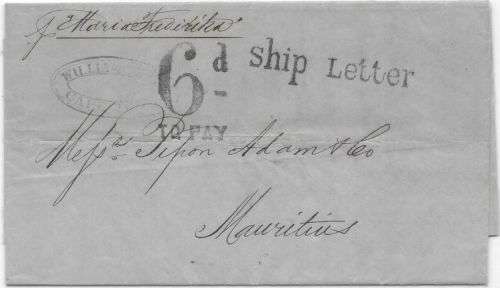 p "Maria Fredrika"
WILLIAM
6d
TO PAY
Ship Letter
Messrs. Pipon Adam & Co
Mauritius